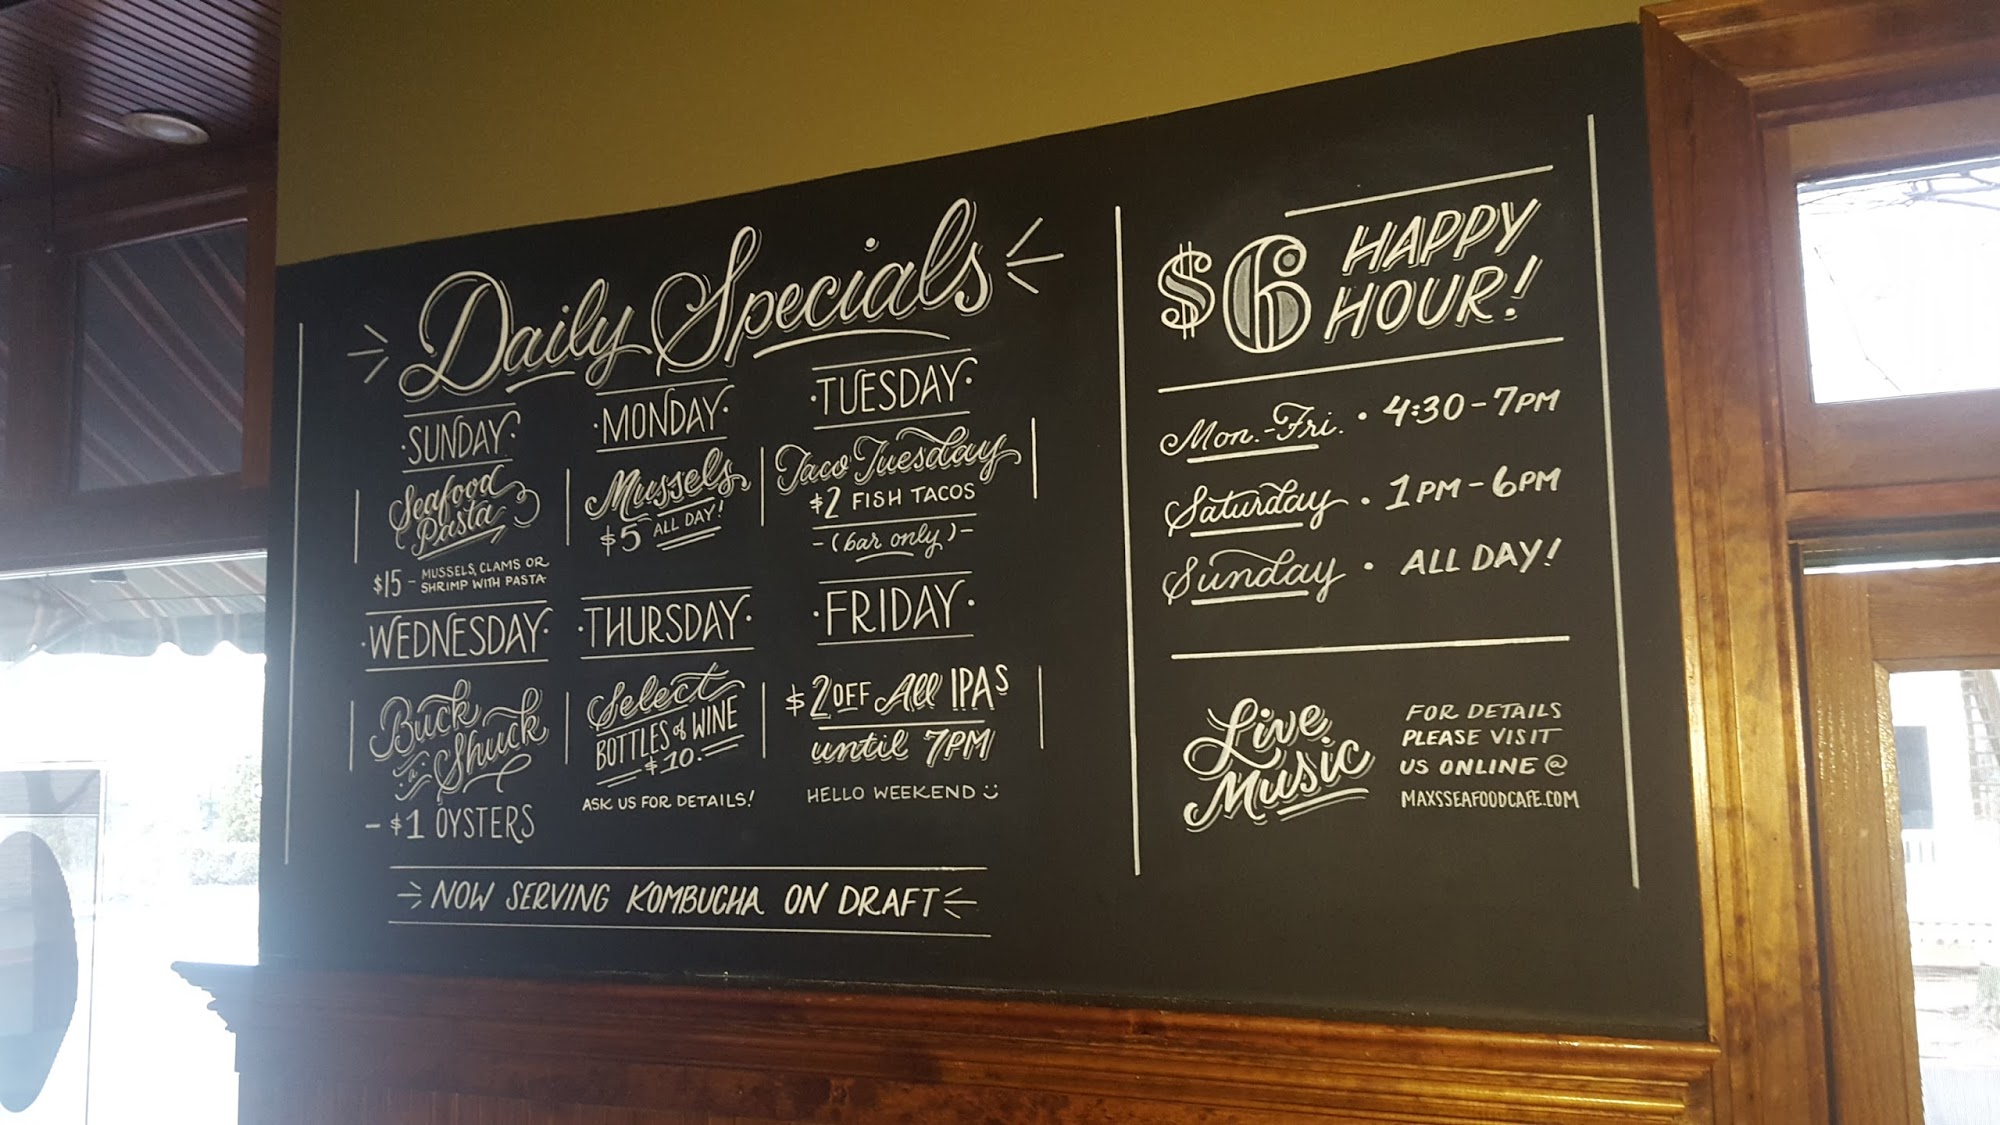 Daily Specials
·SUNDAY·
Seafood
Pasta
$15 - MUSSELS, CLAMS OR
SHRIMP WITH PASTA
·MONDAY·
Mussels
$5 ALL DAY!
·TUESDAY·
Taco Tuesday
$2 FISH TACOS
- (bar only) -
·WEDNESDAY·
Buck
a Shuck
- $1 OYSTERS
·THURSDAY·
Select
BOTTLES of WINE
$10
ASK US FOR DETAILS!
·FRIDAY·
$2 OFF All IPAS
until 7PM
HELLO WEEKEND :)
NOW SERVING KOMBUCHA ON DRAFT
$6 HAPPY
HOUR!
Mon.-Fri. · 4:30-7PM
Saturday · 1PM-6PM
Sunday · ALL DAY!
Live
Music
FOR DETAILS
PLEASE VISIT
US ONLINE @
MAXSSEAFOODCAFE.COM